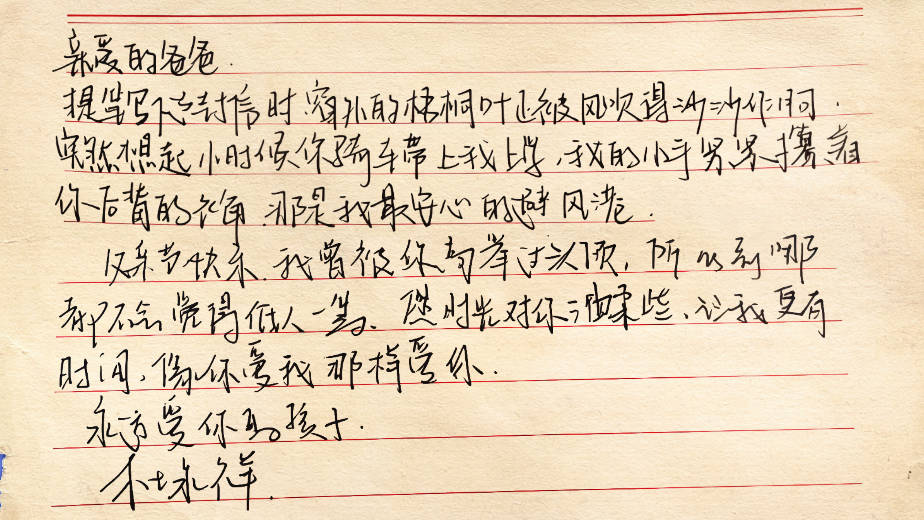 亲爱的爸爸.
提笔写下这封信时窗外的梧桐叶正被风吹得沙沙作响.
突然想起小时候你骑车带上我上学,我的小手紧紧攥着
你后背的衣角.那是我最安心的避风港.
父亲节快乐.我曾被你高举过头顶,所以到哪
都不会觉得低人一等、愿时光对你温柔些、让我更有
时间,像你爱我那样爱你.
永远爱你的孩子.
杜永祥.